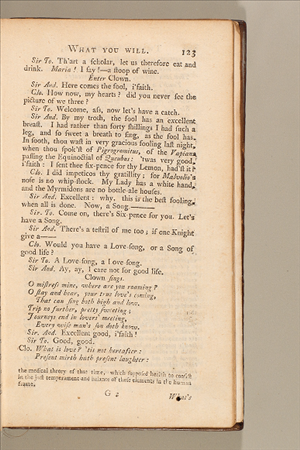 WHAT YOU WILL. 123
Sir To. Th'art a scholar, let us therefore eat and
drink. Maria! I say!—a stoop of wine.
Enter Clown.
Sir And. Here comes the fool, i'faith.
Clo. How now, my hearts? did you never see the
picture of we three?
Sir To. Welcome, ass, now let's have a catch.
Sir And. By my troth, the fool has an excellent
breast. I had rather than forty shillings I had such a
leg, and so sweet a breath to sing, as the fool has.
In sooth, thou wast in very gracious fooling last night,
when thou spok'st of Pigrogromitus, of the Vapians
passing the Equinoctial of Queubus: 'twas very good,
i'faith: I sent thee six-pence for thy Lemon, had'st it?
Clo. I did impeticos thy gratillity; for Malvolio's
nose is no whip-stock. My Lady has a white hand,
and the Myrmidons are no bottle-ale houses.
Sir And. Excellent: why, this is the best fooling,
when all is done. Now, a Song———
Sir To. Come on, there's Six-pence for you. Let's
have a Song.
Sir And. There's a testril of me too; if one Knight
give a——
Clo. Would you have a Love-song, or a Song of
good life?
Sir To. A Love-song, a Love-song.
Sir And. Ay, ay, I care not for good life.
Clown sings.
O mistress mine, where are you roaming?
O stay and hear, your true love's coming,
That can sing both high and low.
Trip no further, pretty sweeting;
Journeys end in lovers' meeting,
Every wise man's son doth know.
Sir And. Excellent good, i'faith!
Sir To. Good, good.
Clo. What is love? 'tis not hereafter:
Present mirth hath present laughter:
the medical theory of that time, which supposed health to consist
in the just temperament and balance of these elements in the human
frame.
G 2 What's